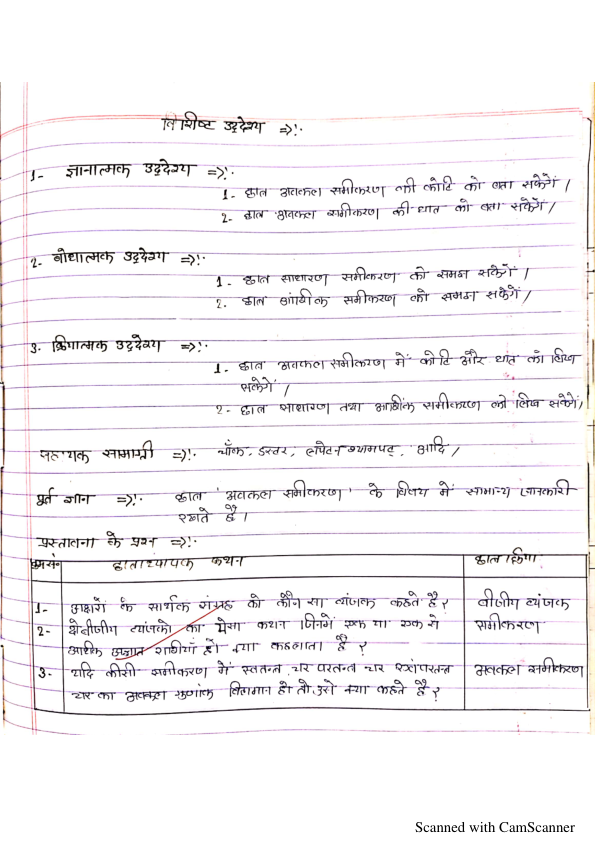 विशिष्ट उद्देश्य =>:-
1- ज्ञानात्मक उद्देश्य =>:-
1- छात्र अवकल समीकरण की कोटि को बता सकेगें।
2- छात्र अवकल समीकरण की घात को बता सकेगें।
2- बोधात्मक उद्देश्य =>:-
1- छात्र साधारण समीकरण को समझ सकेगें।
2. छात्र आंशिक समीकरण को समझ सकेगें।
3. क्रियात्मक उद्देश्य =>:-
1- छात्र अवकल समीकरण में कोटि और घात को लिख
सकेगें।
2- छात्र साधारण तथा आशिंक समीकरण को लिख सकेगें।
सहायक सामाग्री =>:- चाँक, डस्टर, लपेटन श्यामपट, आदि।
पूर्व ज्ञान =>:- छात्र 'अवकल समीकरण' के विषय में सामान्य जानकारी
रखते हैं।
प्रस्तावना के प्रश्न =>:-
क्रम सं० छात्राध्यापक कथन छात्र क्रिया
1- अक्षरों के सार्थक संग्रह को कौन सा व्यंजक कहते है? बीजीय व्यंजक
2- व्यंजको का ऐसा कथन जिनमें एक या एक से समीकरण
अधिक अज्ञात राशियाँ हो क्या कहलाता है?
3- यदि कीसी समीकरण में स्वतन्त्र चर परतन्त्र चर अवकल समीकरण
चर का अवकल गुणांक विद्यमान हो तो उसे क्या कहते है?
Scanned with CamScanner